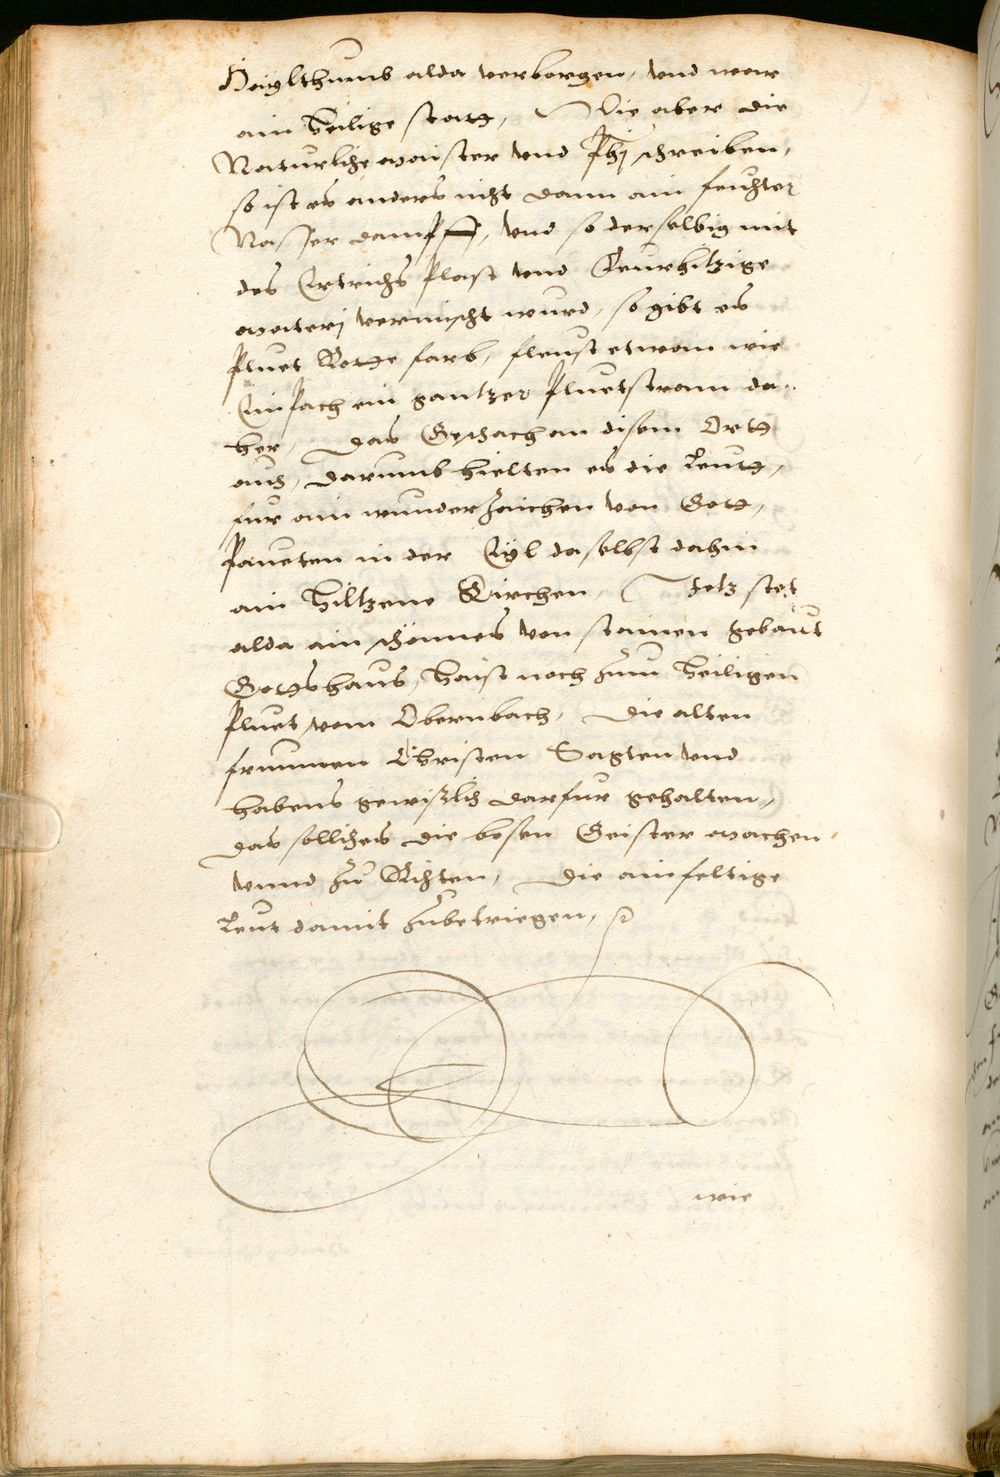 Haylthumb alda verborgen, vnd wer
ain heilige statt, Wie aber die
Naturliche maister vnd Phi schreiben,
so ist es anders nicht dann ain feuchter
Nasser dampff, vnd so derselbig mit
des Ertrichs Plast vnd Feurhitzige
materj vermischt wurd, so gibt es
Pluet Rotte farb, fleust etwan wie
Einfach ein gantzer Pluetstram da„
her, Das Geschach an disem Ortt
auch, darumb hielten es die Leutt,
fur ain wunderzaichen von Gott,
Paueten in der Eyl daselbst dahin
ain hiltzene Kirchen, Jetz stet
alda ain schönnes von stainen gebaut
Gottshaus, haist noch zum heiligen
Pluet vom Obernbach, Die alten
frummen Christen Sagten vnd
habens gewißlich darfur gehalten,
das solliches die bösen Geister machen,
vnnd zu Richten, Die ainfeltige
Leut damit zubetriegen,
wie